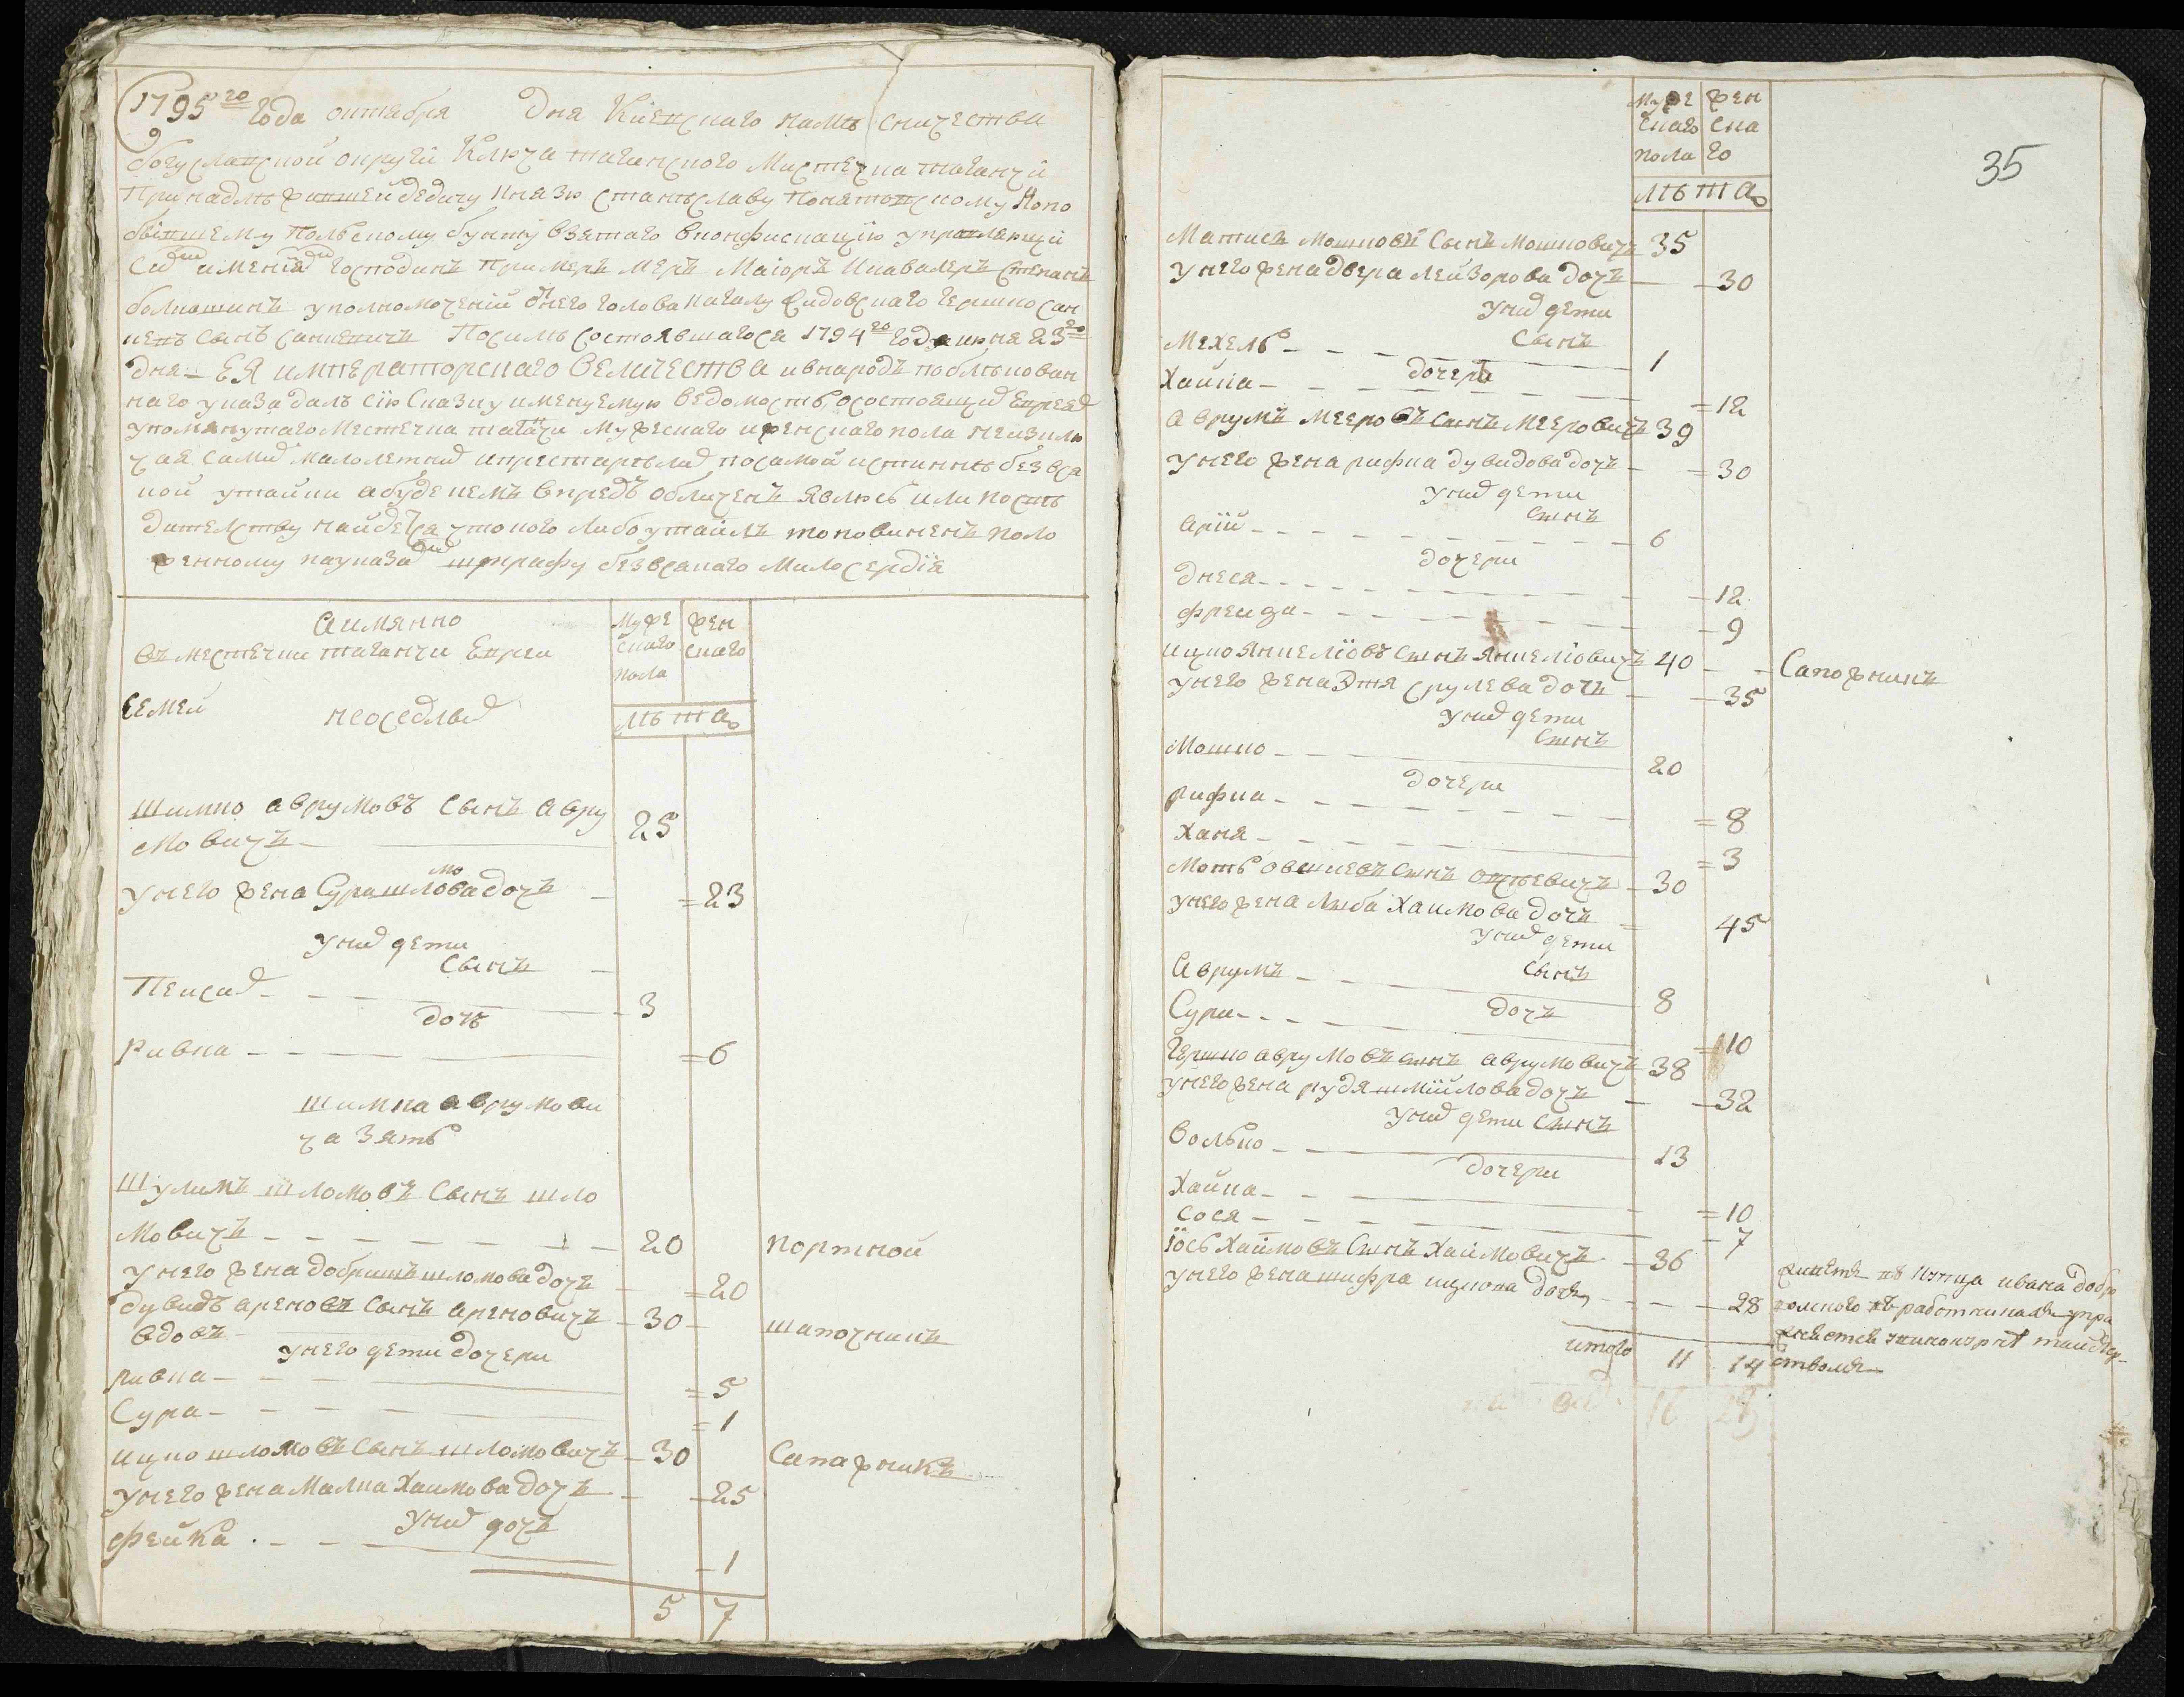 1795го Года октября дня Киевского наместничества
богуславской округи Ключа таганского Мистечка таганчи
Принадлѣжавшей дедичу князю станѣславу понятовскому
польскому бунту взятаго вконфискацию управляющи
именія Господинъ Примеръ Меръ Маіоръ и кавалеръ степанъ
уполномоченій от него голова кагалу жидовского гершко
сынъ По силѣ состоявшагося 1794го года июня 23го
дня ЕЯ императорскаго Величества и внародъ публѣкован
наго указа далъ сію Сказку именуемую Ведомость о состоящих Евреях
упомянутаго Местечка таганчи Мужескаго и женскаго пола неизклю
чая самих малолетних и престарѣлих по самой истиннѣ без вся
кой утайки а буде кемъ впредъ обличенъ явлюсь или по слѣ
дителству найдется что кого либо утаилъ то повиненъ поло
женному по указам штрафу без всякаго Милосердія
А имянно
въ местечки таганчи Евреи
Муже скаго пола
Жен скаго
СЕМЕЙ неоседлых
лѣта
Шимко аврумовъ сынъ авру
мовичъ 25
у него жена Сура шломова дочъ 23
у них дети
сынъ
Пейсах 3
дочъ
Ривка 6
шимка аврумови
ча зять
Шулимъ шломовъ сынъ шло
мовичъ 20 портной
у него жена добришъ шломова дочъ 20
дувидъ ароновъ сынъ ароновичъ 30 шапочникъ
вдовъ
у него дети дочери
ривка 5
Сура 1
ицко шломовъ сынъ шломовичъ 30 Сапожникъ
у него жена Малка Хаимова дочъ 25
у них дочъ
фейка 1
5 7
35
Муже скаго пола
жен ска го
лѣта
Матисъ Мошковъ сынъ Мошковичъ 35
у него жена двера лейзорова дочъ 30
у них дети
сынъ
Мехель 1
дочеръ
Хайка 12
аврумъ Мееровъ сынъ Мееровичъ 39
у него жена рифка дувидова дочъ 30
у них дети
сынъ
арій 6
дочери
днеся 12
фрейда 9
ицко янкеліовъ сынъ янкеліовичъ 40 Сапожникъ
у него жена Этя срулева дочъ 35
у них дети
сынъ
Мошко 20
дочери
рифка 8
Ханя 3
Моть овшиевъ сынъ 30
у него жена Люба Хаимова дочъ 45
у них дети
сынъ
Аврумъ 8
дочъ
Сура 10
Гершко аврумовъ сынъ аврумовичъ 38
у него жена рудя шмійлова дочъ 32
у них дети сынъ
Волько 13
дочери
Хайка 10
сося 7
Іось Хаймовъ сынъ Хаймовичъ 36
у него жена шифра ицкова дочъ 28
живетъ въ купца ивана добро
волского въ работникахъ упра
итого 11 14
16 21